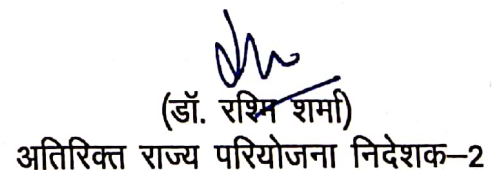 (डॉ. रश्मि शर्मा)
अतिरिक्त राज्य परियोजना निदेशक–2